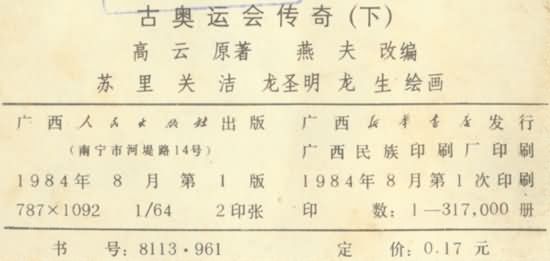 古奥运会传奇(下)
高云 原著 燕夫 改编
苏里 关洁 龙圣明 龙生 绘画
广西人民出版社出版 广西新华书店发行
(南宁市河堤路14号) 广西民族印刷厂印刷
1984年8月第1版 1984年8月第1次印刷
787×1092 1/64 2印张 印数:1—317,000册
书号:8113·961 定价:0.17元